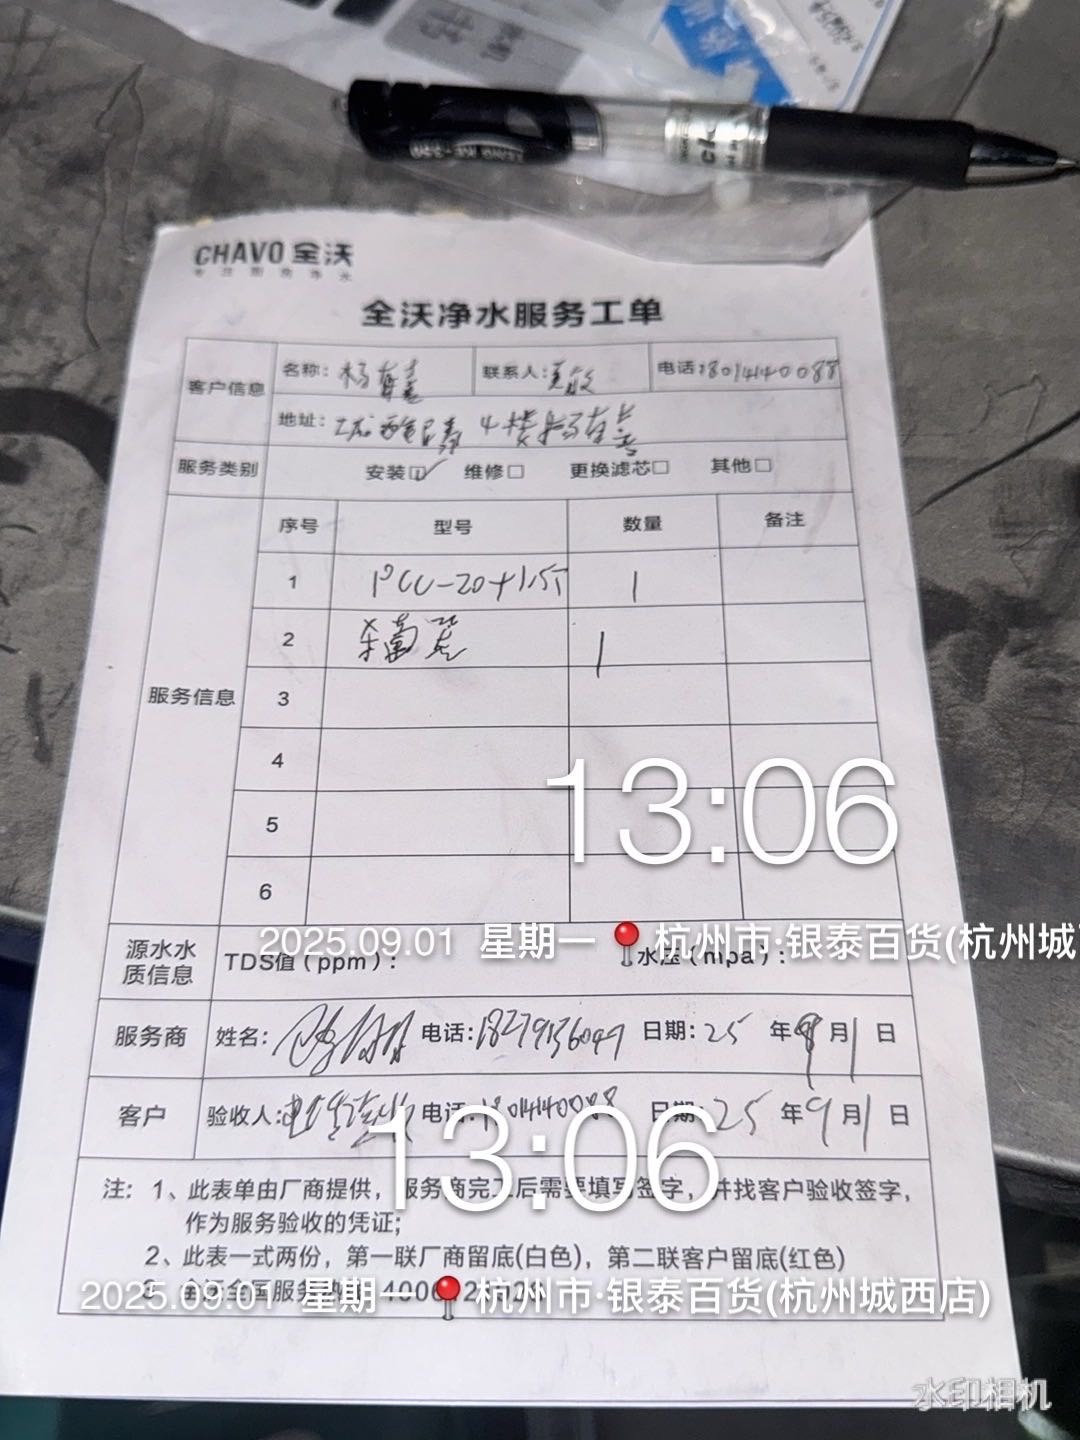 CHAVO 全沃
全沃净水服务工单
客户信息 名称: 杨有喜 联系人: 电话: 18014140088
地址: 城西银泰 4楼杨有喜
服务类别 安装☑ 维修□ 更换滤芯□ 其他□
服务信息
序号 型号 数量 备注
1 PCC-20+1.5T 1
2 杀菌器 1
3
4
5
6
13:06
2025.09.01 星期一 杭州市·银泰百货(杭州城西
源水水质信息 TDS值(ppm): 水压(mpa):
服务商 姓名: 电话: 18279536049 日期: 25 年 9 月 1 日
客户 验收人: 电话: 18014140088 日期: 25 年 9 月 1 日
13:06
注: 1、此表单由厂商提供，服务商完工后需要填写签字，并找客户验收签字，
作为服务验收的凭证;
2、此表一式两份，第一联厂商留底(白色)，第二联客户留底(红色)
全沃全国服务
2025.09.01 星期一 杭州市·银泰百货(杭州城西店)
水印相机